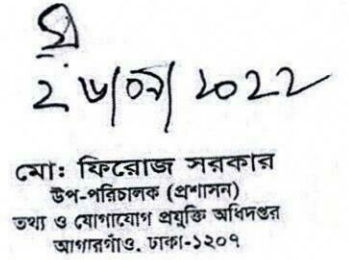 ২৬/০৯/২০২২
মো: ফিরোজ সরকার
উপ-পরিচালক (প্রশাসন)
তথ্য ও যোগাযোগ প্রযুক্তি অধিদপ্তর
আগারগাঁও, ঢাকা-১২০৭